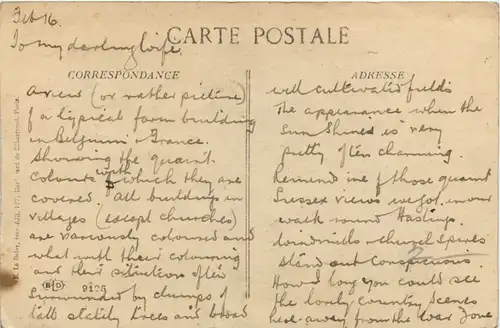 Feb 16.
To my darling wife.
CARTE POSTALE
CORRESPONDANCE
A view (or rather picture)
of a typical farm building
in Belgium & France.
Showing the quaint
colours with which they are
covered. All buildings in
villages (except churches)
are variously coloured and
what with their colouring
and their situation often
surrounded by clumps of
tall stately trees and broad
ADRESSE
well cultivated fields
The appearance when the
sun shines is very
pretty often charming.
Remind me of those quaint
Sussex views we got in our
walk round Hastings.
Windmills & church spires
stand out conspicuous.
How I long you could see
the lovely country scenes
here away from the war zone
ED 9125